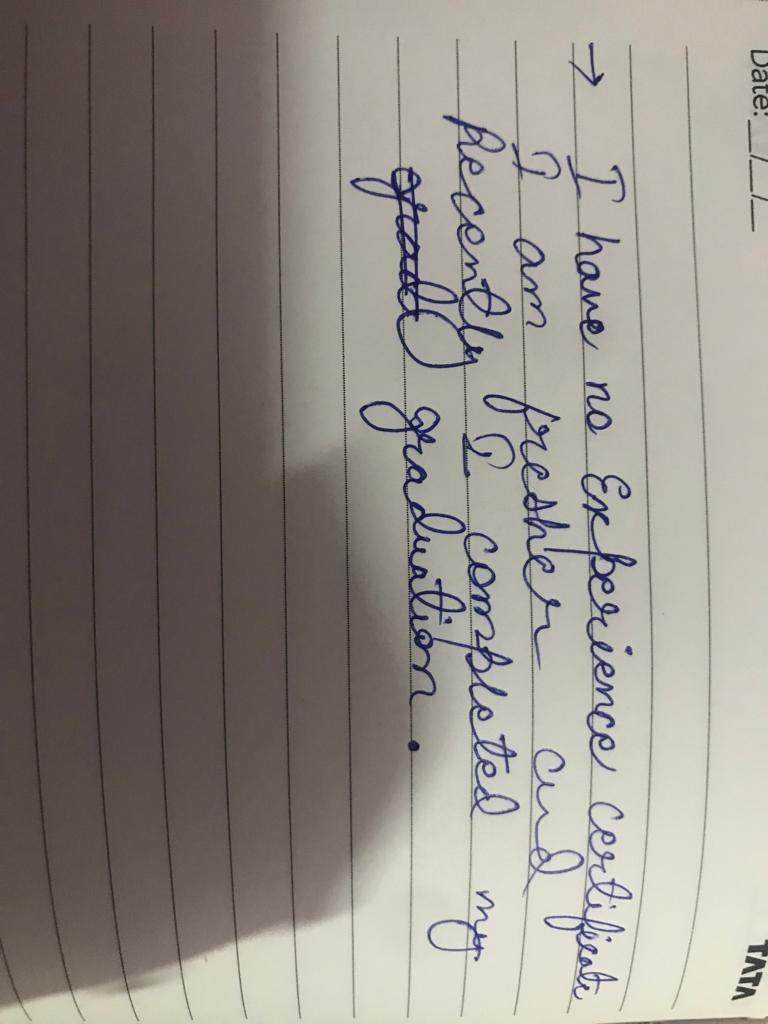 Date:__/__/__
TATA
→ I have no Experience certificate
I am fresher and
Recently I completed my
graduation.